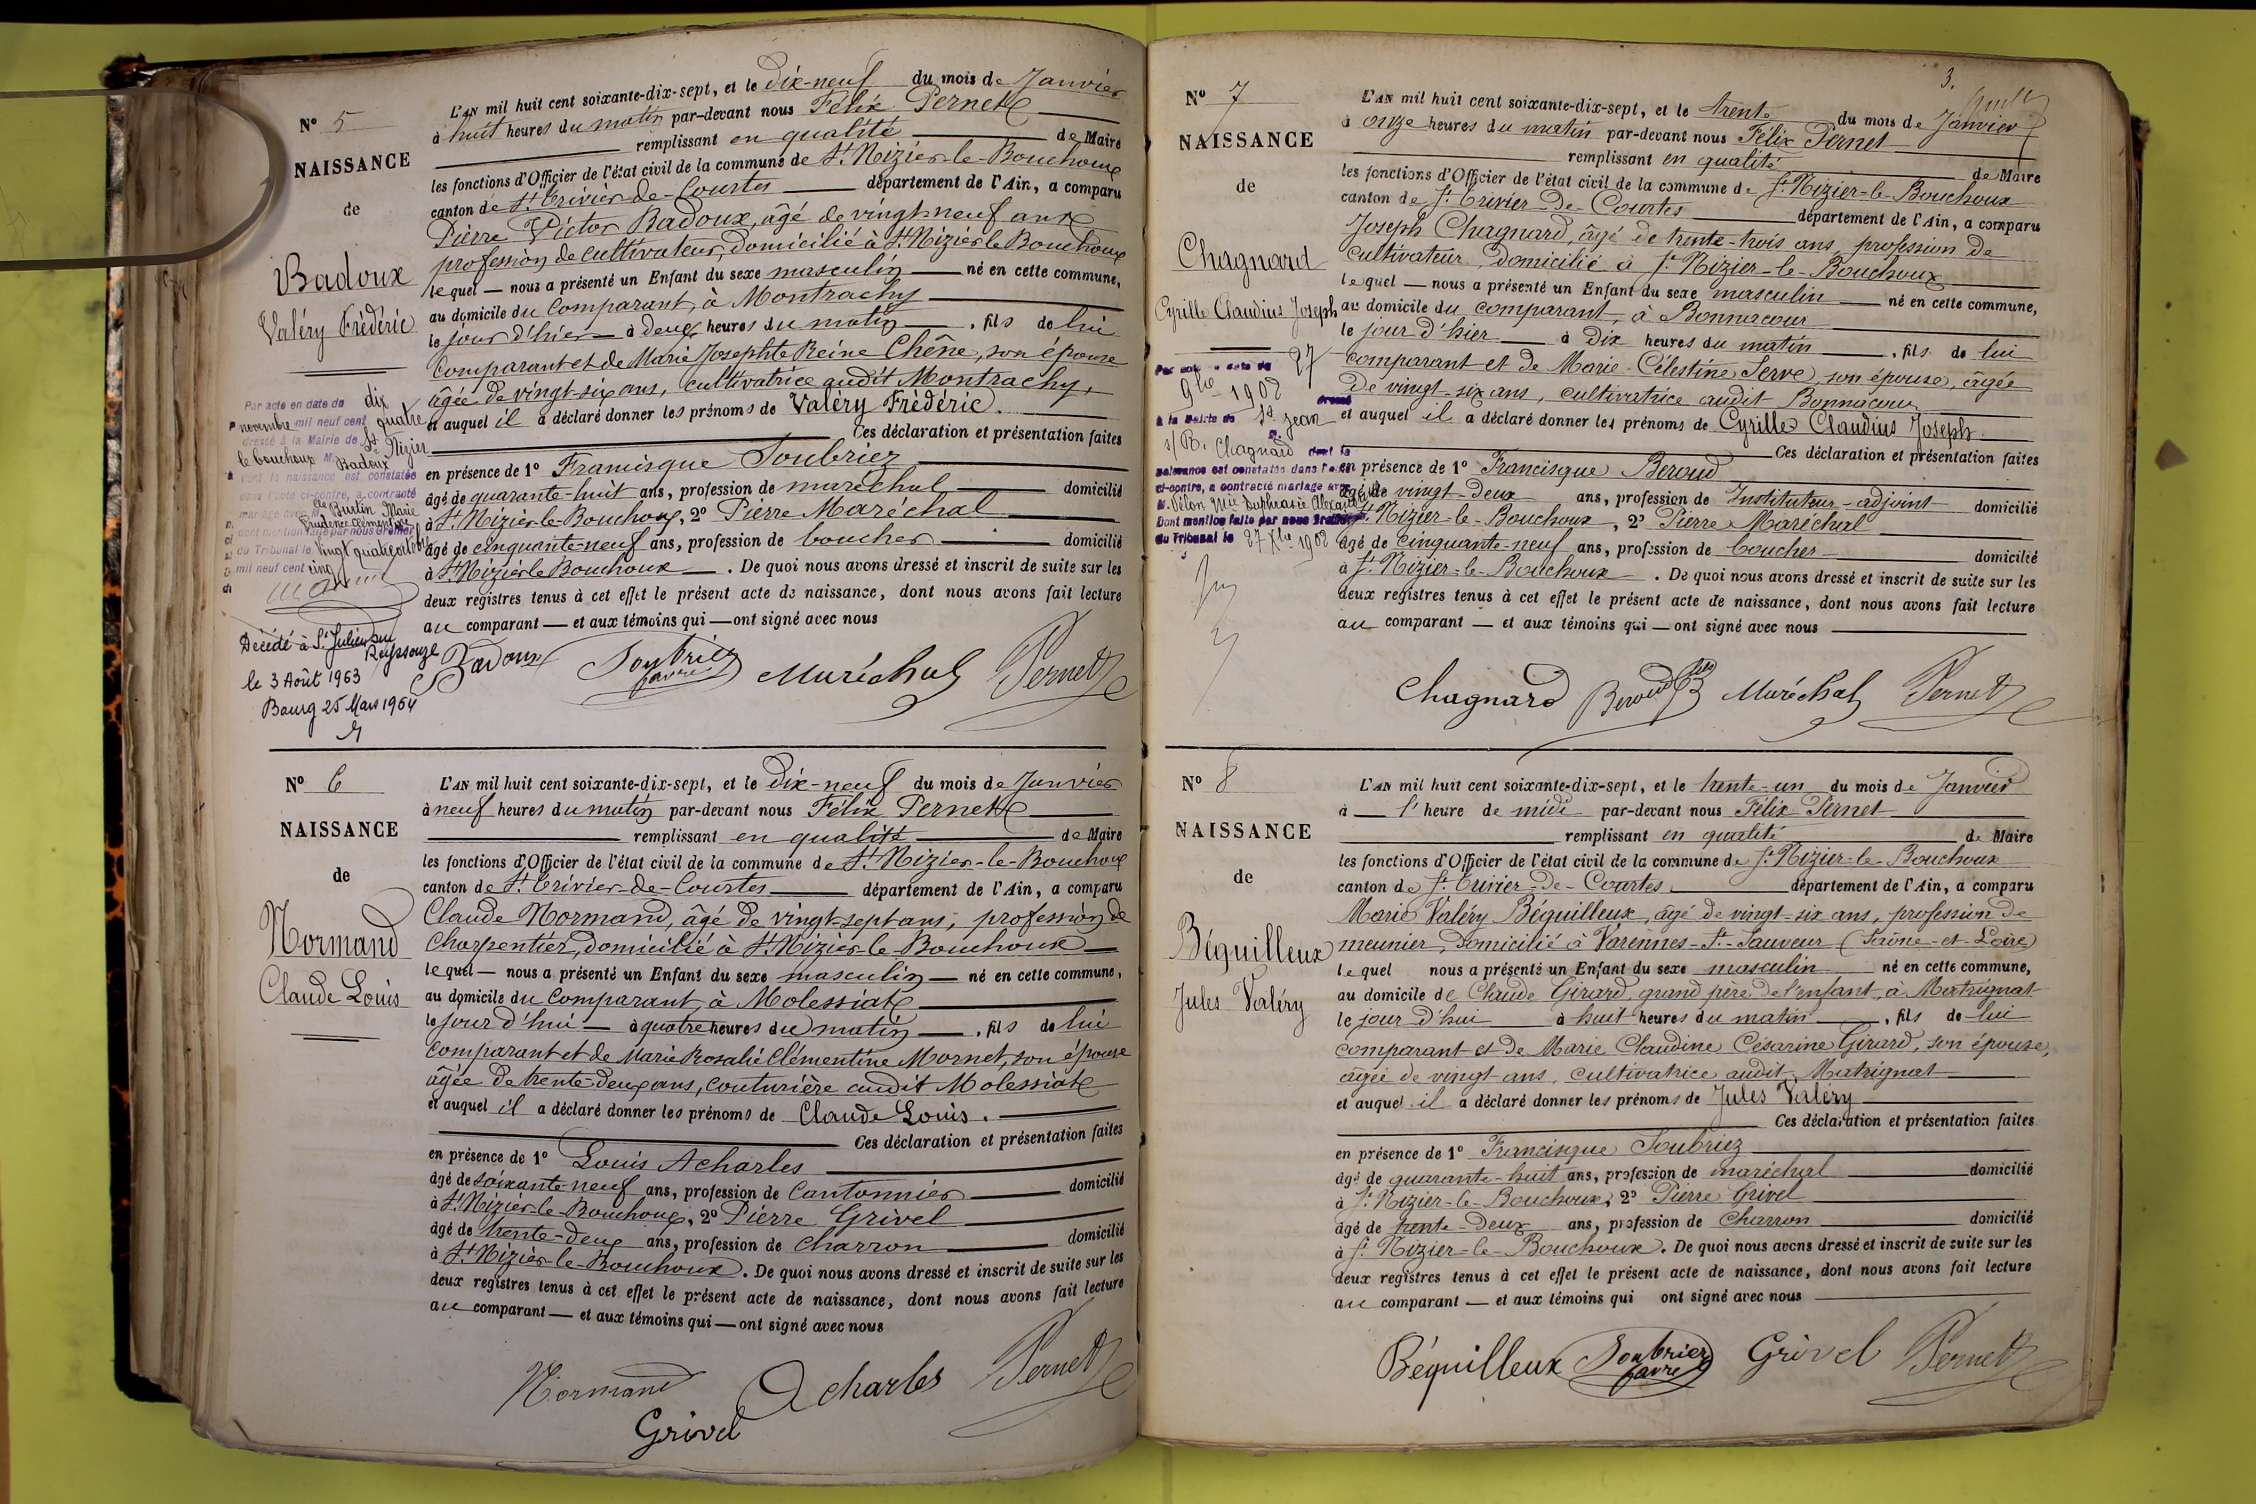 N° 5
NAISSANCE
de
Badoux
Valéry Frédéric
Par acte en date du dix
novembre mil neuf cent quatre
dressé à la Mairie de St Nizier
le bouchoux M. Badoux
dont la naissance est constatée
dans l'acte ci-contre, a contracté
mariage avec Mlle Burlin Marie
Prudence Clémentine
dont mention faite par nous Greffier
du Tribunal le vingt quatre octobre
mil neuf cent cinq
Décédé à St Julien sur
Reyssouze
le 3 Août 1963
Bourg 25 Mars 1964
L'AN mil huit cent soixante-dix-sept, et le Dix-neuf du mois de Janvier
à huit heures du matin par-devant nous Félix Pernet
remplissant en qualité de Maire
les fonctions d'Officier de l'état civil de la commune de St Nizier-le-Bouchoux
canton de St Trivier-de-Courtes département de l'Ain, a comparu
Pierre Victor Badoux, âgé de vingt neuf ans
profession de cultivateur, domicilié à St Nizier le Bouchoux
lequel — nous a présenté un Enfant du sexe masculin — né en cette commune,
au domicile du comparant, à Montrachy
le jour d'hier — à deux heures du matin —, fils de lui
comparant et de Marie Josephte Reine Chêne, son épouse
âgée de vingt-six ans, cultivatrice audit Montrachy,
et auquel il a déclaré donner les prénoms de Valéry Frédéric.
Ces déclaration et présentation faites
en présence de 1° Francisque Soubriez
âgé de quarante-huit ans, profession de maréchal domicilié
à St Nizier-le-Bouchoux, 2° Pierre Maréchal
âgé de cinquante-neuf ans, profession de boucher domicilié
à St Nizier le Bouchoux —. De quoi nous avons dressé et inscrit de suite sur les
deux registres tenus à cet effet le présent acte de naissance, dont nous avons fait lecture
au comparant — et aux témoins qui — ont signé avec nous
Badoux Soubrier favre Maréchal Pernet
N° 6
NAISSANCE
de
Normand
Claude Louis
L'AN mil huit cent soixante-dix-sept, et le Dix-neuf du mois de Janvier
à neuf heures du matin par-devant nous Félix Pernet
remplissant en qualité de Maire
les fonctions d'Officier de l'état civil de la commune de St Nizier-le-Bouchoux
canton de St Trivier-de-Courtes département de l'Ain, a comparu
Claude Normand, âgé de vingt-sept ans, profession de
charpentier, domicilié à St Nizier-le-Bouchoux
lequel — nous a présenté un Enfant du sexe masculin — né en cette commune,
au domicile du comparant, à Molessiat
le jour d'hui — à quatre heures du matin —, fils de lui
comparant et de Marie Rosalie Clémentine Mornet, son épouse
âgée de trente-deux ans, couturière audit Molessiat
et auquel il a déclaré donner les prénoms de Claude Louis.
Ces déclaration et présentation faites
en présence de 1° Louis Acharles
âgé de soixante-neuf ans, profession de Cantonnier domicilié
à St Nizier-le-Bouchoux, 2° Pierre Grivel
âgé de trente-deux ans, profession de charron domicilié
à St Nizier-le-Bouchoux. De quoi nous avons dressé et inscrit de suite sur les
deux registres tenus à cet effet le présent acte de naissance, dont nous avons fait lecture
au comparant — et aux témoins qui — ont signé avec nous
Normand Acharles Pernet
Grivel
3.
N° 7
NAISSANCE
de
Chagnard
Cyrille Claudius Joseph
Par acte en date du 27
9bre 1902 dressé
à la Mairie de St Jean
s/ R. M. Chagnard dont la
naissance est constatée dans l'acte
ci-contre, a contracté mariage avec
Dont mention faite par nous Greffier
du Tribunal le 27 Xbre 1902
L'AN mil huit cent soixante-dix-sept, et le trente du mois de Janvier
à onze heures du matin par-devant nous Félix Pernet
remplissant en qualité de Maire
les fonctions d'Officier de l'état civil de la commune de St Nizier-le-Bouchoux
canton de St Trivier-de-Courtes département de l'Ain, a comparu
Joseph Chagnard, âgé de trente-trois ans, profession de
cultivateur, domicilié à St Nizier-le-Bouchoux
lequel — nous a présenté un Enfant du sexe masculin — né en cette commune,
au domicile du comparant, à Bonnacour
le jour d'hier — à Dix heures du matin —, fils de lui
comparant et de Marie Célestine Serve, son épouse, âgée
de vingt-six ans, cultivatrice audit Bonnacour
et auquel il a déclaré donner les prénoms de Cyrille Claudius Joseph.
Ces déclaration et présentation faites
en présence de 1° Francisque Beroud
âgé de vingt-deux ans, profession de Instituteur-adjoint domicilié
à St Nizier-le-Bouchoux, 2° Pierre Maréchal
âgé de cinquante-neuf ans, profession de boucher domicilié
à St Nizier-le-Bouchoux. De quoi nous avons dressé et inscrit de suite sur les
deux registres tenus à cet effet le présent acte de naissance, dont nous avons fait lecture
au comparant — et aux témoins qui — ont signé avec nous
Chagnard Beroud Maréchal Pernet
N° 8
NAISSANCE
de
Béguilleux
Jules Valéry
L'AN mil huit cent soixante-dix-sept, et le trente-un du mois de Janvier
à — l'heure de midi par-devant nous Félix Pernet
remplissant en qualité de Maire
les fonctions d'Officier de l'état civil de la commune de St Nizier-le-Bouchoux
canton de St Trivier-de-Courtes département de l'Ain, a comparu
Marie Valéry Béguilleux, âgé de vingt-six ans, profession de
meunier, domicilié à Varennes-St-Sauveur (Saône-et-Loire)
lequel nous a présenté un Enfant du sexe masculin né en cette commune,
au domicile de Claude Girard, grand père de l'enfant, à Matrignat
le jour d'hui à huit heures du matin —, fils de lui
comparant et de Marie Claudine Césarine Girard, son épouse,
âgée de vingt ans, cultivatrice audit Matrignat
et auquel il a déclaré donner les prénoms de Jules Valéry
Ces déclaration et présentation faites
en présence de 1° Francisque Soubriez
âgé de quarante-huit ans, profession de maréchal domicilié
à St Nizier-le-Bouchoux, 2° Pierre Grivel
âgé de trente-deux ans, profession de charron domicilié
à St Nizier-le-Bouchoux. De quoi nous avons dressé et inscrit de suite sur les
deux registres tenus à cet effet le présent acte de naissance, dont nous avons fait lecture
au comparant — et aux témoins qui ont signé avec nous
Béguilleux Soubrier favre Grivel Pernet